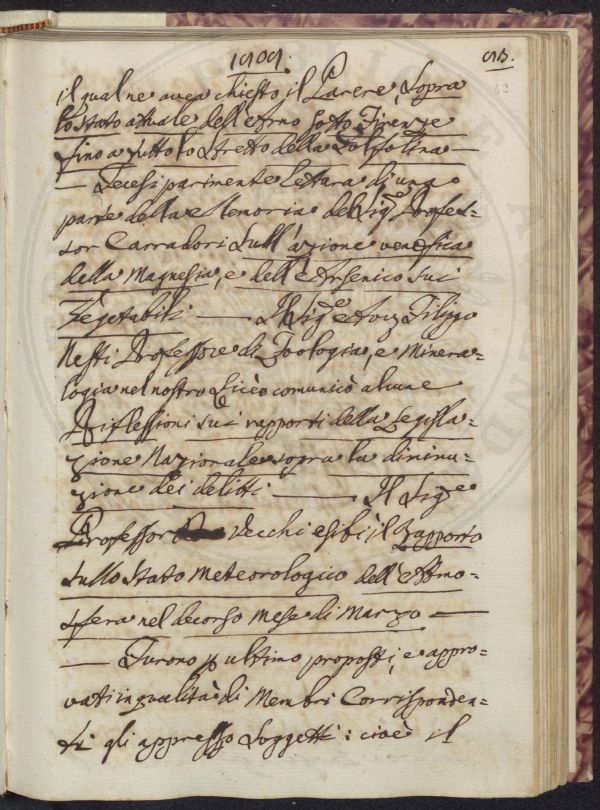 il qual ne avea chiesto il Parere, Sopra
lo Stato attuale dell'Arno sotto Firenze
fino a tutto lo Stretto della Golfolina —
— Fecesi parimente lettura di una
parte della Memoria del Sig.e Profes=
sor Carradori Sull'azione venefica
della Magnesia, e dell'Arsenico sui
Vegetabili — Il Sig.e Avv. Filippo
Nesti Professore di Zoologia, e Minera=
logia nel nostro Liceo comunicò alcune
Riflessioni sui rapporti della Legisla=
zione Nazionale sopra la diminu=
zione dei delitti — Il Sig.e
Professor Vecchi esibì il Rapporto
sullo Stato Meteorologico dell'Atmo=
sfera nel decorso Mese di Marzo —
— Furono p ultimo proposti, e appro=
vati in qualità di Membri Corrisponden=
ti gli appresso Soggetti: cioè il